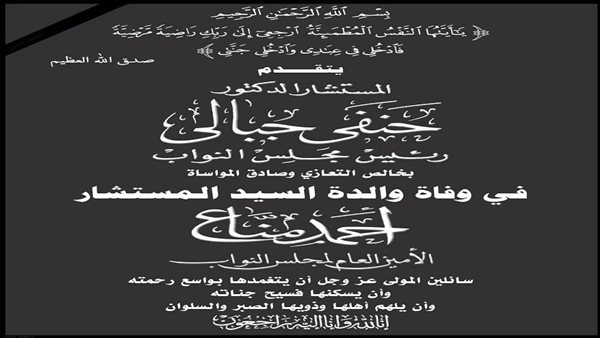 بِسْمِ اللَّهِ الرَّحْمَنِ الرَّحِيمِ
﴿ يَا أَيَّتُهَا النَّفْسُ الْمُطْمَئِنَّةُ ارْجِعِي إِلَى رَبِّكِ رَاضِيَةً مَرْضِيَّةً
فَادْخُلِي فِي عِبَادِي وَادْخُلِي جَنَّتِي ﴾
صدق الله العظيم
يتقدم
المستشار الدكتور
حنفى جبالى
رئيس مجلس النواب
بخالص التعازي وصادق المواساة
في وفاة والدة السيد المستشار
أحمد مناع
الأمين العام لمجلس النواب
سائلين المولى عز وجل أن يتغمدها بواسع رحمته
وأن يسكنها فسيح جناته
وأن يلهم أهلها وذويها الصبر والسلوان
إنا لله وإنا إليه راجعون